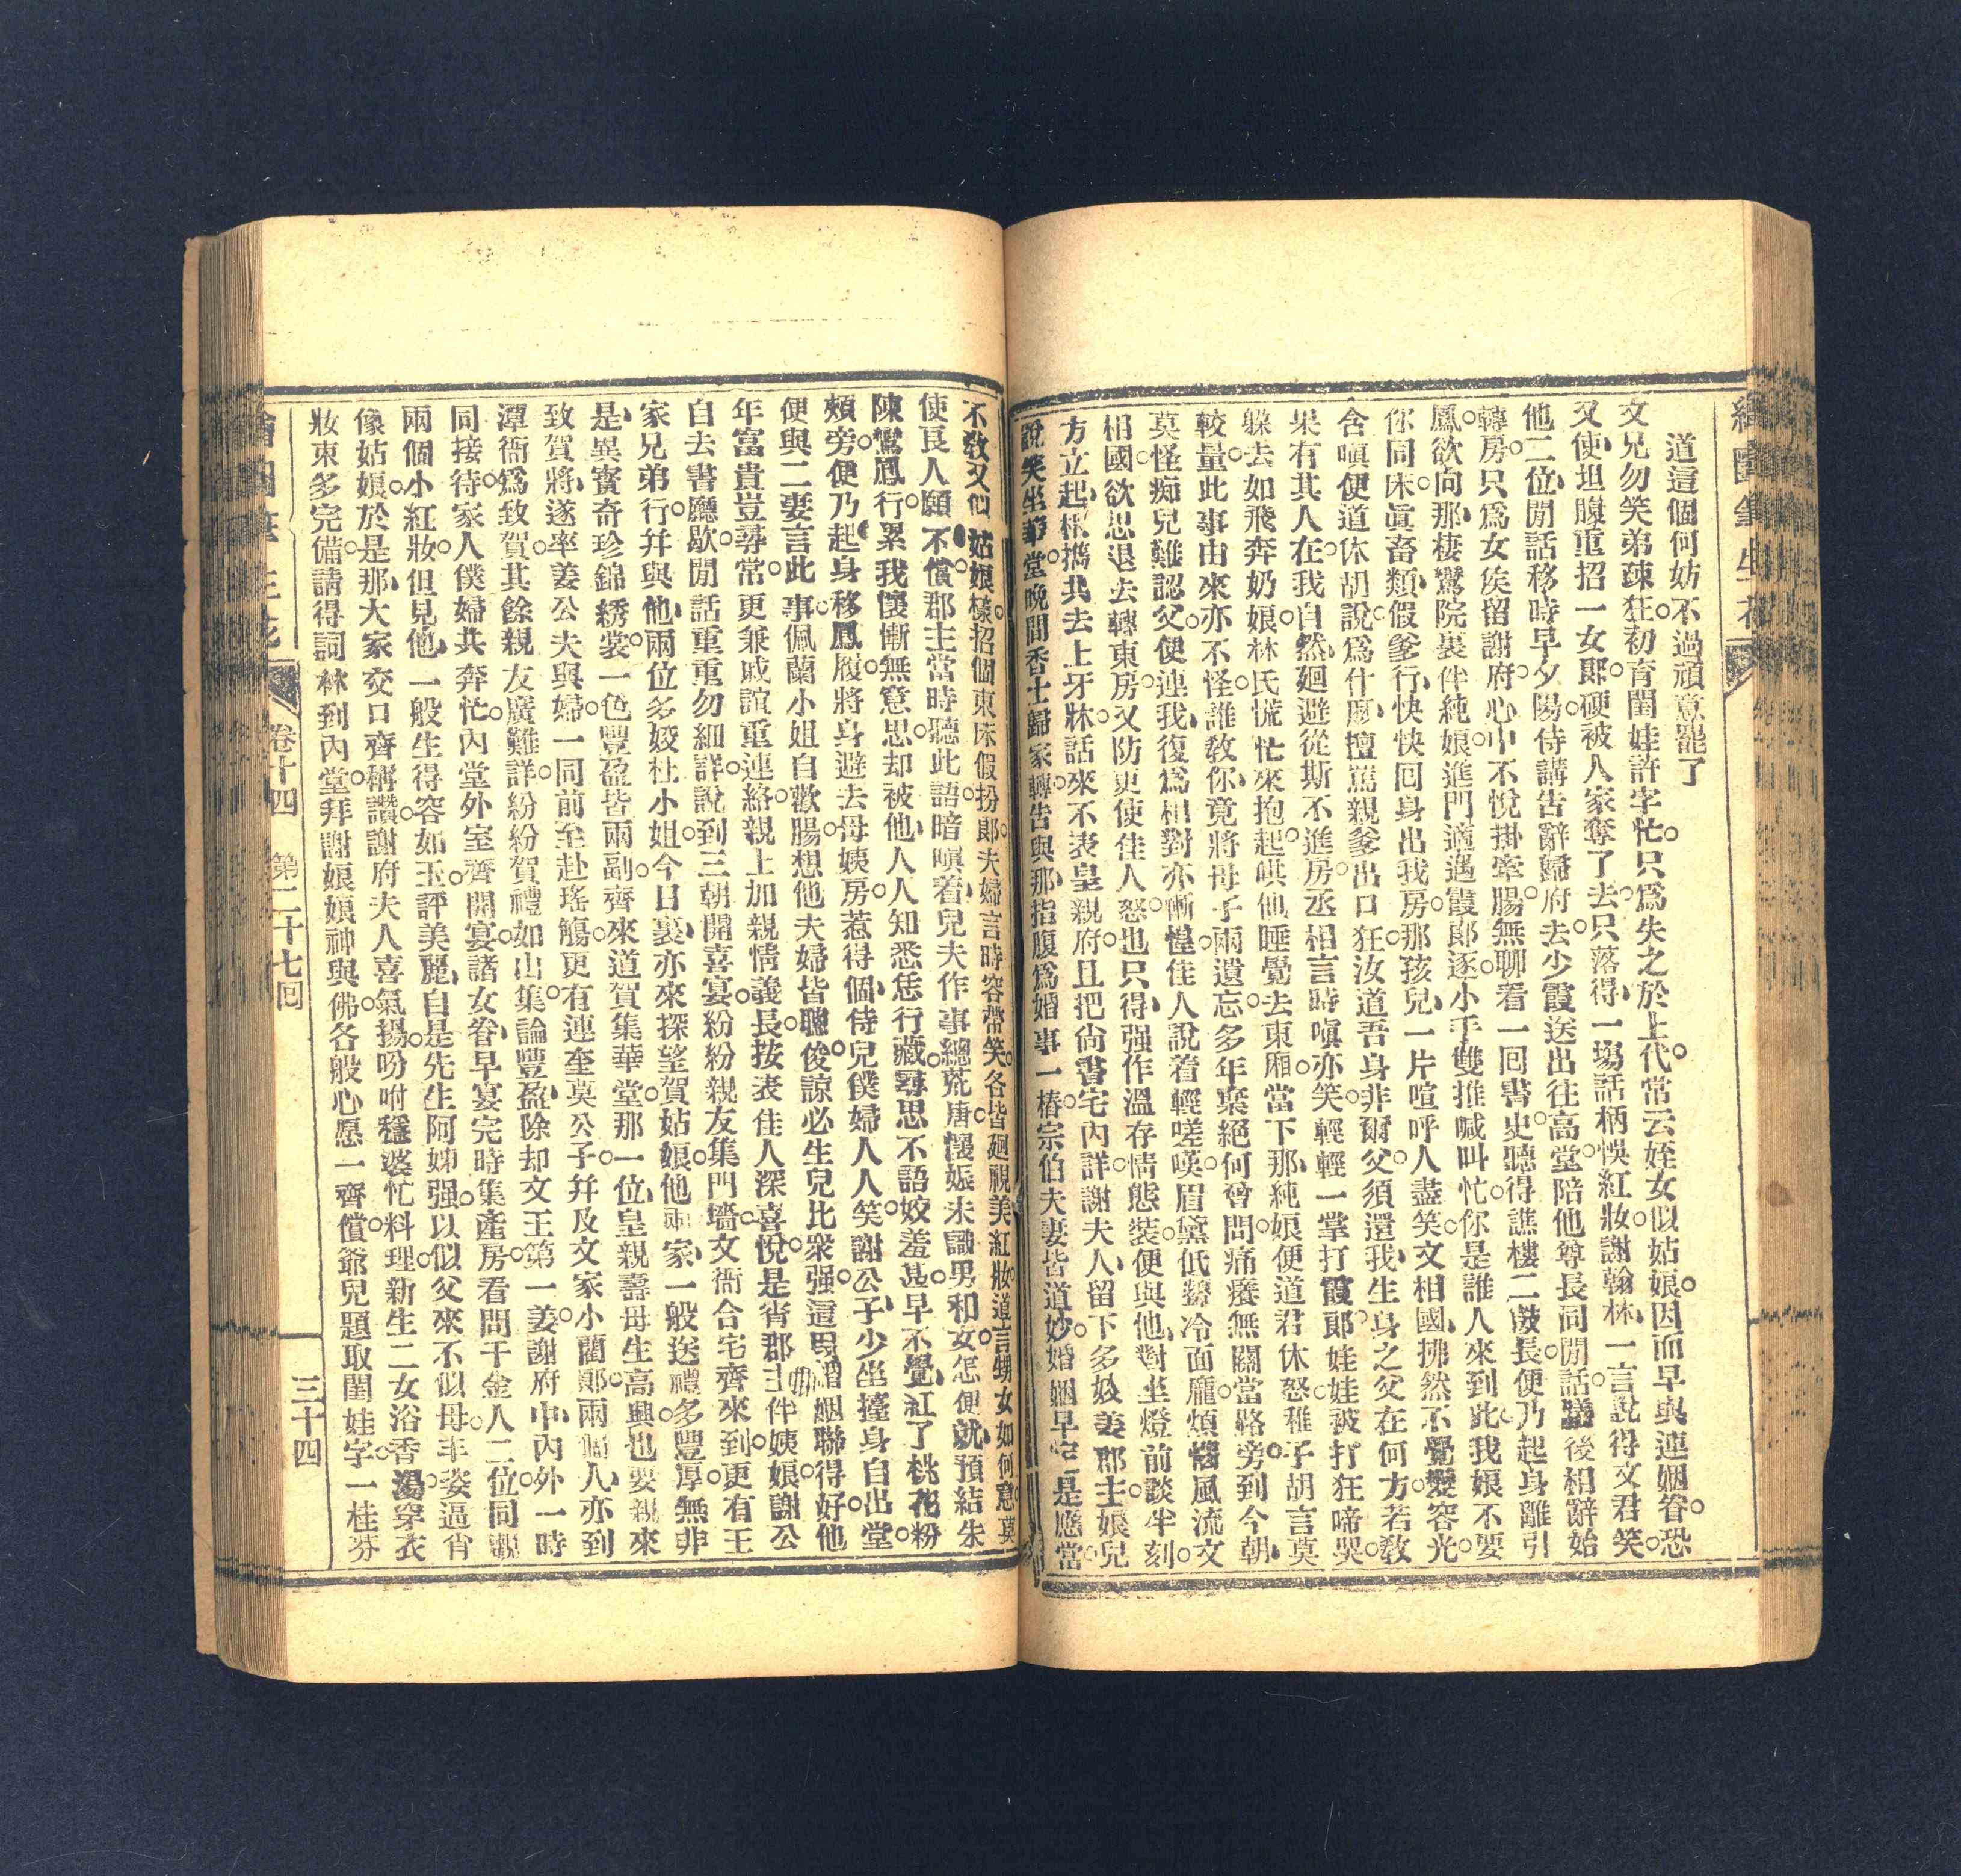 繪圖筆生花
道這個何妨不過頑意罷了
文兄勿笑弟疎狂。初育閨娃許字忙。只爲失之於上代。常云姪女似姑娘。因而早與連姻眷。恐
又使坦腹重招一女郎。硬被人家奪了去。只落得一塲話柄悞紅妝。謝翰林一言說得文君笑。
他二位閒話移時早夕陽。侍講告辭歸府去。少霞送出往高堂。陪他尊長同閒話。議後相辭始
轉房。只爲女侯留謝府。心中不悅掛牽腸。無聊看一回書史。聽得譙樓二皷長。便乃起身離引
鳳。欲向那棲鸞院裏伴純娘。進門適遇霞郞逐。小手雙推喊叫忙。你是誰人來到此。我娘不要
你同床。眞畜類。假爹行。快快回身出我房。那孩兒一片喧呼人盡笑。文相國拂然不覺變容光。
含嗔便道休胡說。爲什麽擅罵親爹出口狂。汝道吾身非爾父。須還我生身之父在何方。若敎
果有其人在。我自然廻避從斯不進房。丞相言時嗔亦笑。輕輕一掌打霞郞。娃娃被打狂啼哭。
躱去如飛奔奶娘。林氏慌忙來抱起。哄他睡覺去東厢。當下那純娘便道君休怒。稚子胡言莫
較量。此事由來亦不怪。誰敎你竟將母子兩遺忘。多年棄絕何曾問。痛癢無關當路旁。到今朝
莫怪痴兒難認父。便連我復爲相對亦慚惶。佳人說着輕嗟嘆。眉黛低顰冷面龐。煩惱風流文
相國。欲思退去轉東房。又防更使佳人怒。也只得强作溫存情態裝。便與他對坐燈前談半刻。
方立起相攜共去上牙牀。話來不表皇親府。且把尙書宅內詳。謝夫人留下多姣姜郡主。娘兒
說笑坐華堂。晚間香士歸家轉。告與那指腹爲婚事一樁。宗伯夫妻皆道妙。婚姻早定是應當。
不敎又似姑娘樣。招個東床假扮郞。夫婦言時容帶笑。各皆廻視美紅妝。道言甥女如何意。莫
使良人願不償。郡主當時聽此語。暗嗔着兒夫作事總荒唐。懷娠未識男和女。怎便就預結朱
陳鸞鳳行。累我懷慚無意思。却被他人人知悉恁行藏。尋思不語姣羞甚。早不覺紅了桃花粉
頰旁。便乃起身移鳳履。將身避去母姨房。惹得個侍兒僕婦人人笑。謝公子少坐擡身自出堂。
便與二妻言此事。佩蘭小姐自歡腸。想他夫婦皆聰俊。諒必生兒比衆强。這囘婚姻聯得好。他
年富貴豈尋常。更兼戚誼重連絡。親上加親情義長。按表佳人深喜悅。是宵郡主伴姨娘。謝公
自去書廳歇。閒話重重勿細詳。說到三朝開喜宴。紛紛親友集門墻。文衙合宅齊來到。更有王
家兄弟行。幷與他兩位多姣杜小姐。今日裏亦來探望賀姑娘。他兩家一般送禮多豐厚。無非
是異寳奇珍錦綉裳。一色豐盈皆兩副。齊來道賀集華堂。那一位皇親壽母生高興。也要親來
致賀將。遂率姜公夫與婦。一同前至赴瑤觴。更有連奎莫公子。幷及文家小藺郞。兩個人亦到
潭衙爲致賀。其餘親友廣難詳。紛紛賀禮如山集。論豐盈除却文王第一姜。謝府中內外一時
同接待。家人僕婦共奔忙。內堂外室齊開宴。諸女眷早宴完時集產房。看問千金人二位。同觀
兩個小紅妝。但見他一般生得容如玉。評美麗自是先生阿姊强。以似父來不似母。丰姿逼肖
像姑娘。於是那大家交口齊稱讚。謝府夫人喜氣揚。吩咐穩婆忙料理。新生二女浴香湯。穿衣
妝束多完備。請得詞林到內堂。拜謝娘娘神與佛。各般心愿一齊償。爺兒題取閨娃字。一桂芬
繪圖筆生花 卷十四 第二十七回 三十四